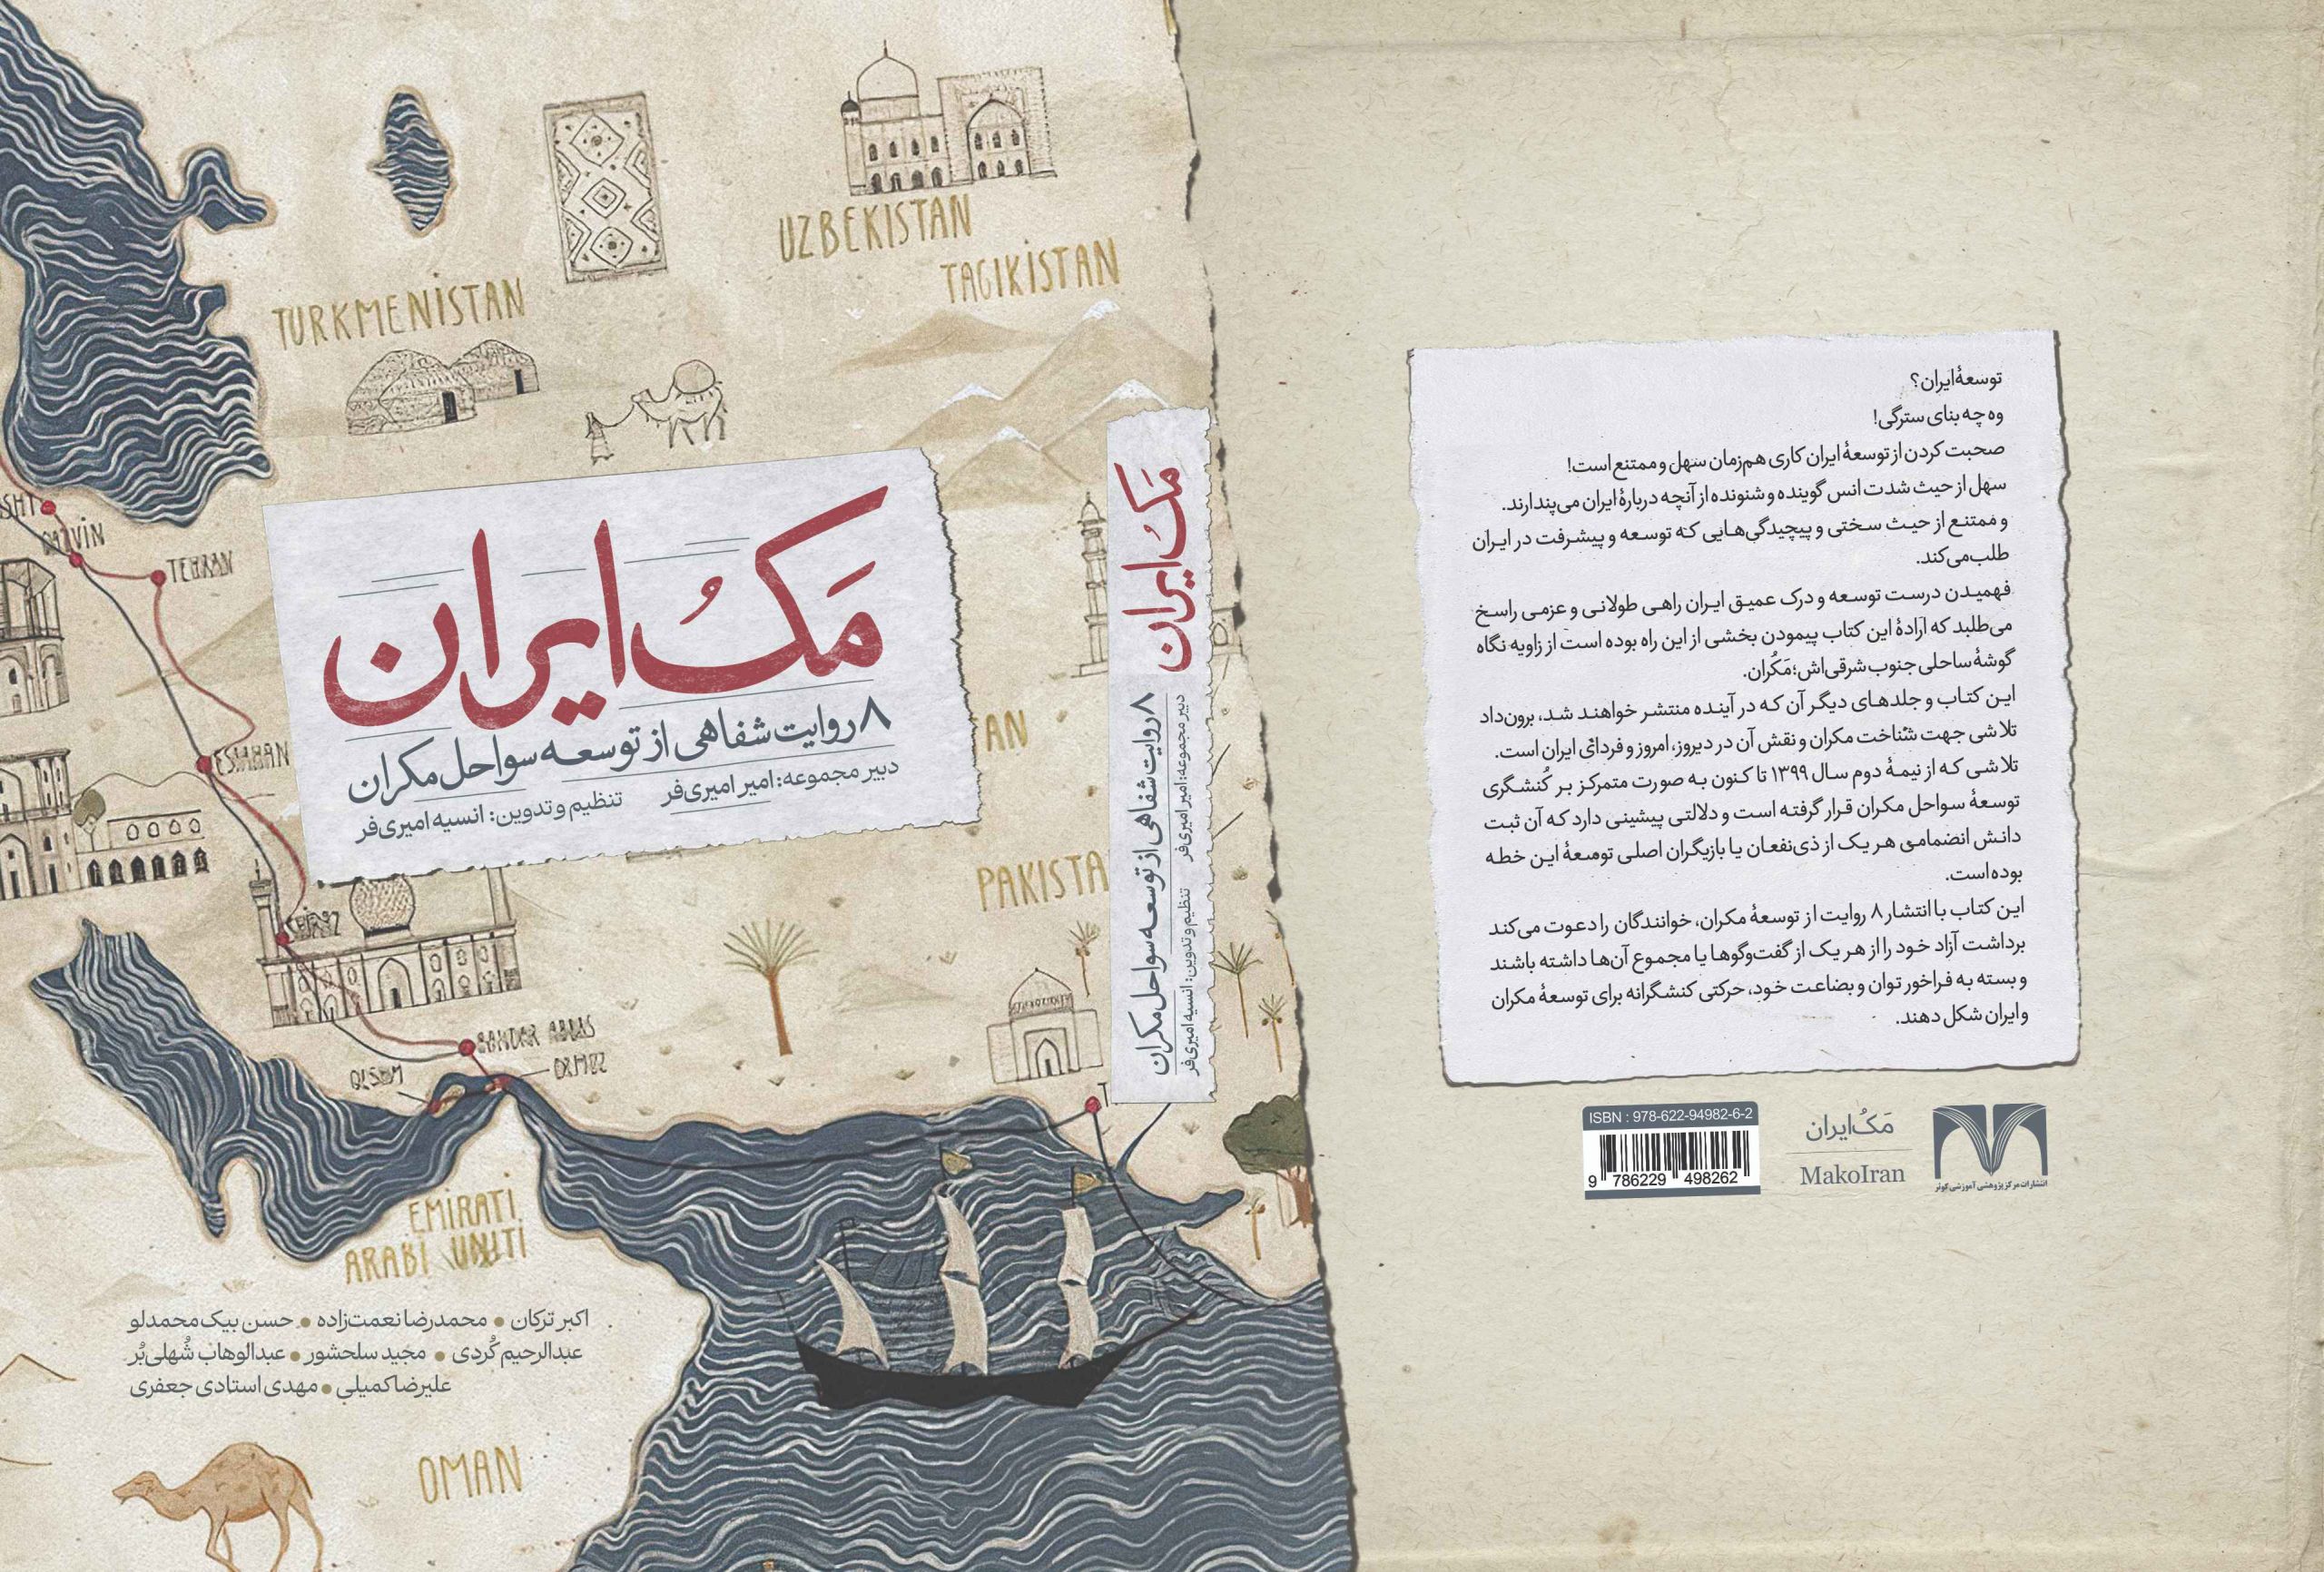 UZBEKISTAN
TAGIKISTAN
TURKMENISTAN
QAZVIN
TEHRAN
ESFAHAN
مَکُ‌ایران
۸ روایت شفاهی از توسعه سواحل مکران
دبیر مجموعه: امیر امیری‌فر
تنظیم و تدوین: انسیه امیری‌فر
AN
PAKISTA
SHIRAZ
BANDAR ABBAS
ORMUZ
QESHM
EMIRATI
ARABI UNITI
اکبر ترکان • محمدرضا نعمت‌زاده • حسن بیک‌محمدلو
عبدالرحیم کُردی • مجید سلحشور • عبدالوهاب شُهلی‌بُر
علیرضا کمیلی • مهدی استادی جعفری
OMAN
مَکُ‌ایران
۸ روایت شفاهی از توسعه سواحل مکران
دبیر مجموعه: امیر امیری‌فر
تنظیم و تدوین: انسیه امیری‌فر
توسعهٔ ایران؟
وه چه بنای سترگی!
صحبت کردن از توسعهٔ ایران کاری هم‌زمان سهل و ممتنع است!
سهل از حیث شدت انس گوینده و شنونده از آنچه دربارهٔ ایران می‌پندارند.
و ممتنع از حیث سختی و پیچیدگی‌هایی که توسعه و پیشرفت در ایران
طلب می‌کند.
فهمیدن درست توسعه و درک عمیق ایران راهی طولانی و عزمی راسخ
می‌طلبد که ارادهٔ این کتاب پیمودن بخشی از این راه بوده است از زاویه نگاه
گوشهٔ ساحلی جنوب شرقی‌اش؛ مَکُران.
این کتاب و جلدهای دیگر آن که در آینده منتشر خواهند شد، برون‌داد
تلاشی جهت شناخت مکران و نقش آن در دیروز، امروز و فردای ایران است.
تلاشی که از نیمهٔ دوم سال ۱۳۹۹ تا کنون به صورت متمرکز بر کُنشگری
توسعهٔ سواحل مکران قرار گرفته است و دلالتی پیشینی دارد که آن ثبت
دانش انضمامی هر یک از ذی‌نفعان یا بازیگران اصلی توسعهٔ این خطه
بوده است.
این کتاب با انتشار ۸ روایت از توسعهٔ مکران، خوانندگان را دعوت می‌کند
برداشت آزاد خود را از هر یک از گفت‌وگوها یا مجموع آن‌ها داشته باشند
و بسته به فراخور توان و بضاعت خود، حرکتی کنشگرانه برای توسعهٔ مکران
و ایران شکل دهند.
ISBN : 978-622-94982-6-2
9 786229 498262
مَکُ‌ایران
MakoIran
انتشارات مرکز پژوهشی آموزشی کوثر